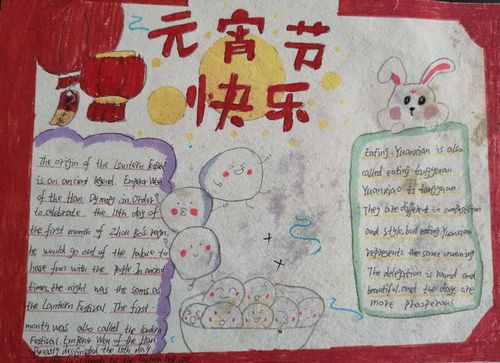 元宵节
快乐
The origin of the Lantern Festival
is an ancient legend. Emperor Wen
of the Han Dynasty in order
to celebrate the 15th day of
the first month of Zhou Bo's reign,
he would go out of the palace to
have fun with the people In ancient
times, the night was the same as
the Lantern Festival The first
month was also called the Lantern
Festival Emperor Wen of the Han
Dynasty designated the 15th day
Eating Yuanxiao is also
called eating tangyuan.
Yuanxiao is tangyuan.
They are different in
and style, but eating Yuanxiao
represents the same meaning
The delegation is round and
beautiful, and the days are
more prosperous